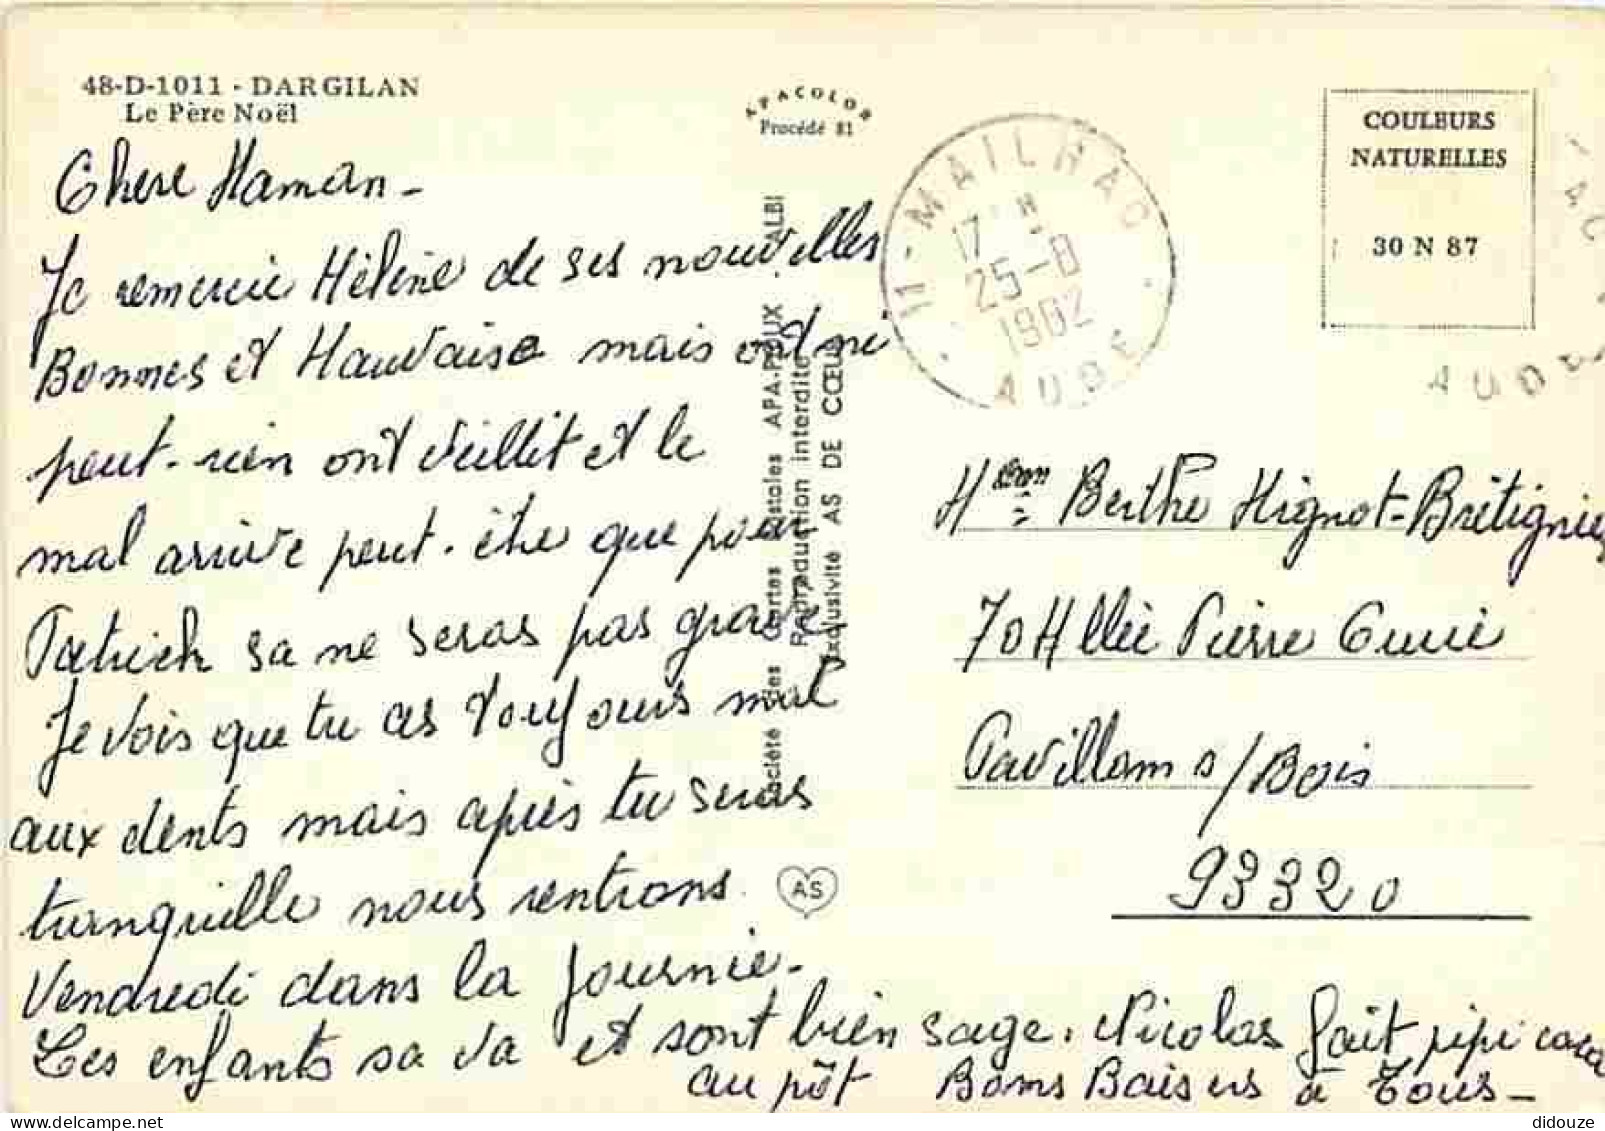 48-D-1011 - DARGILAN
Le Père Noël
APACOLOR
Procédé 81
COULEURS
NATURELLES
30 N 87
11 - MAILHAC
17 H
25-8
1982
AUDE
AUDE
Chere Maman -
Je remercie Hélène de ses nouvelles
Bonnes et Mauvaise mais ont ni
peut. rien ont vieillit et le
mal arrive peut. être que pour
Patrick sa ne seras pas grave
Je vois que tu as toujours mal
aux dents mais après tu seras
tranquille nous rentrons.
Vendredi dans la journée -
Les enfants sa va et sont bien sage. Nicolas fait pipi caca
au pôt Bons Baisers à Tous -
Société des Cartes Postales APA-POUX ALBI
Reproduction interdite
Exclusivité AS DE CŒUR
AS
Berthe Mignot-Brétignies
70 Allée Pierre Curie
Pavillons s/Bois
93320
didouze